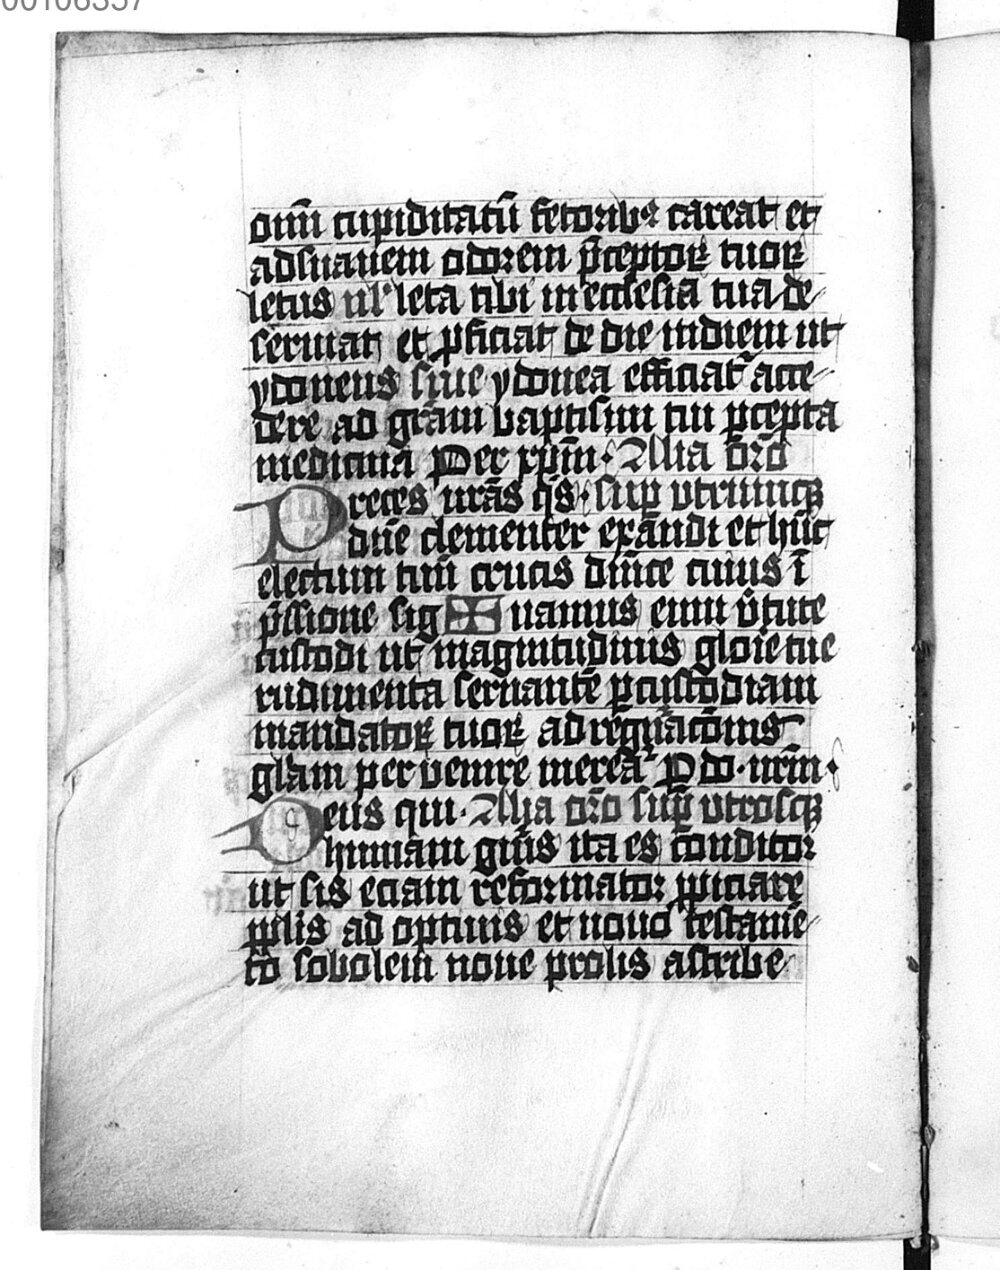 00106357
om̄ı cupiditatū fetoribꝰ careat et
adsuauem odorem p̄ceptoꝝ tuoꝝ
letus ul' leta tibi in ecclesia tua de
seruiat et ꝓficiat de die indiem ut
ydoneus siue ydonea efficiat᷑ acce
dere ad grām baptismi tui ꝑcepta
medicina Per xp̄m· Alia or̄o
Preces nr̄as q̄s· sup utrumqꝫ
dn̄e clementer exaudi et hūc
electum tuū crucis dn̄ice cuius ī
p̄ssione sig ✠ namus eum v̄tute
custodi ut magnitudinis glōie tue
rudimenta seruantē ꝑcustodiam
mandatoꝝ tuoꝝ ad regn̄acōnis
glām peruenire mereat᷑ P do· nr̄m·
Deus qui· Alia or̄o sup̄ utrosqꝫ
humani gn̄is ita es cōnditor
ut sis eciam reformator ꝓpiciare
pplis adoptiuis et nouo testamē
to sobolem noue prolis ascribe